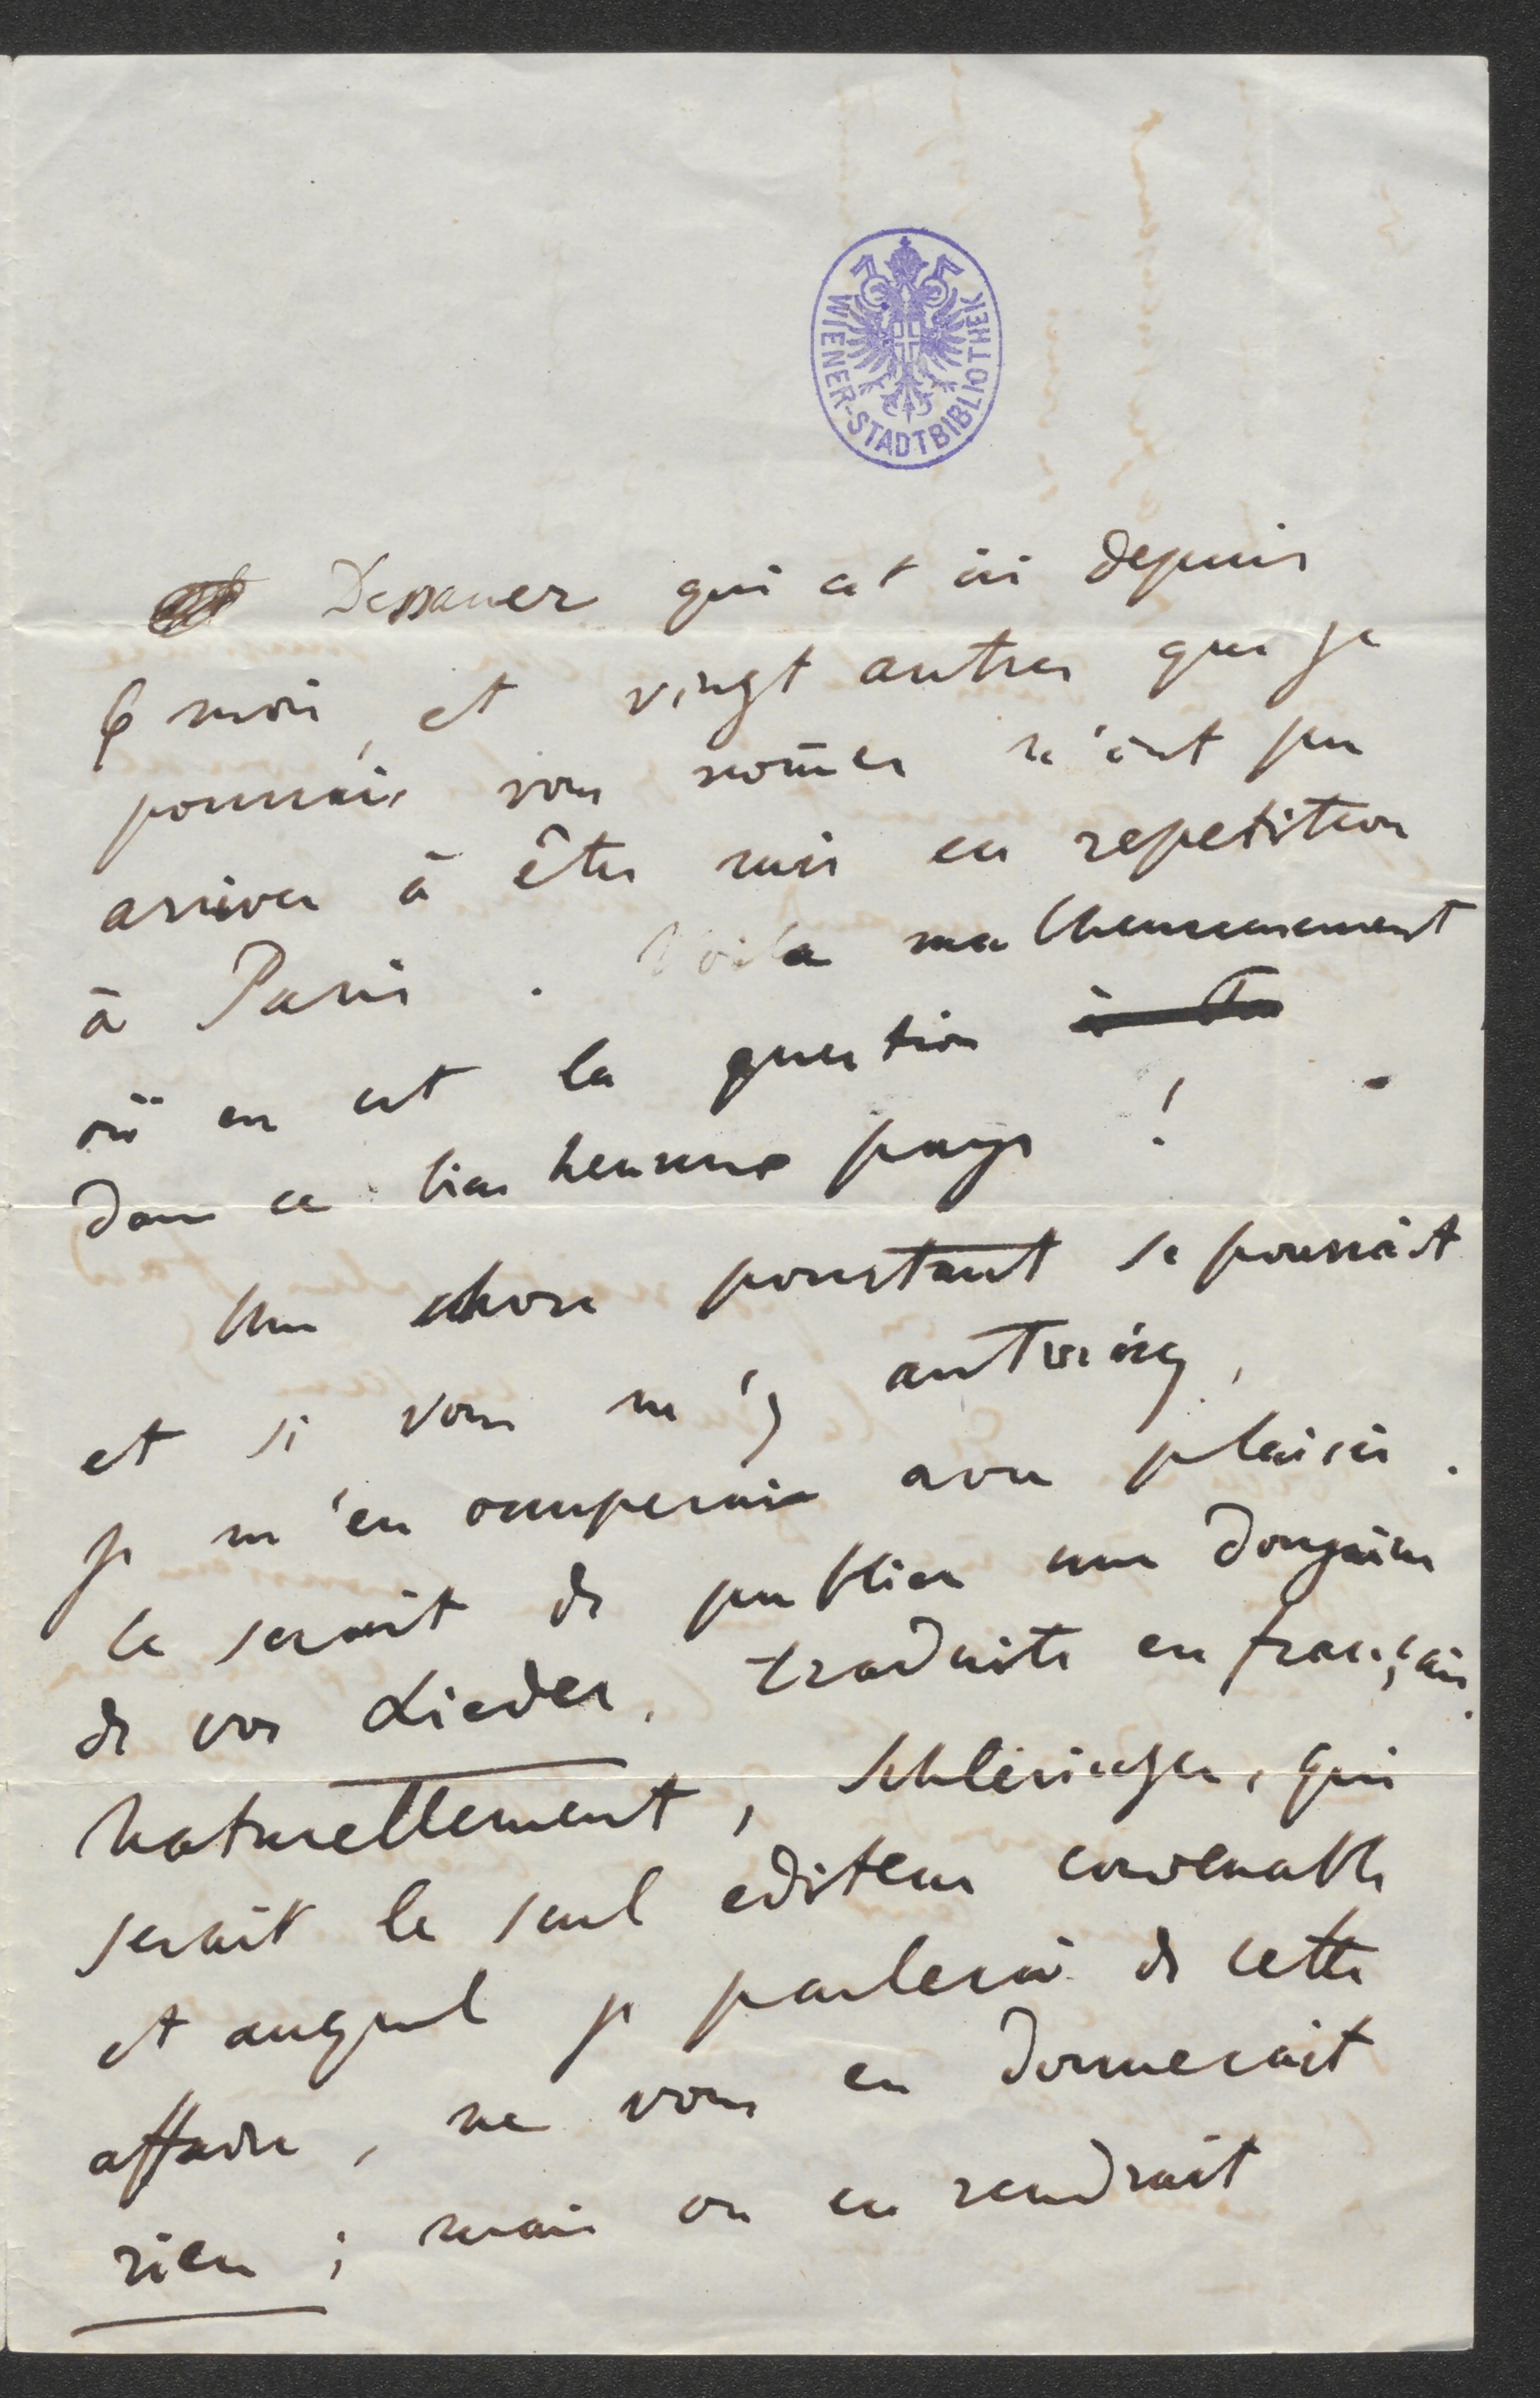 WIENER-STADTBIBLIOTHEK
Dessauer qui est ici depuis
6 mois, et vingt autres que je
pourrais vous nom̄er n'ont pu
arriver à être mis en repetition
à Paris. Voila malheureusement
où en est la question
dans ce bien heureux pays !
Une chose pourtant se pourrait
et si vous m'y autorisez,
je m'en occuperais avec plaisir.
Ce serait de publier une douzaine
de vos Lieder, traduits en français.
Naturellement, Schlesinger, qui
serait le seul editeur convenable
et auquel je parlerai de cette
affaire, ne vous en donnerait
rien ; mais on en rendrait